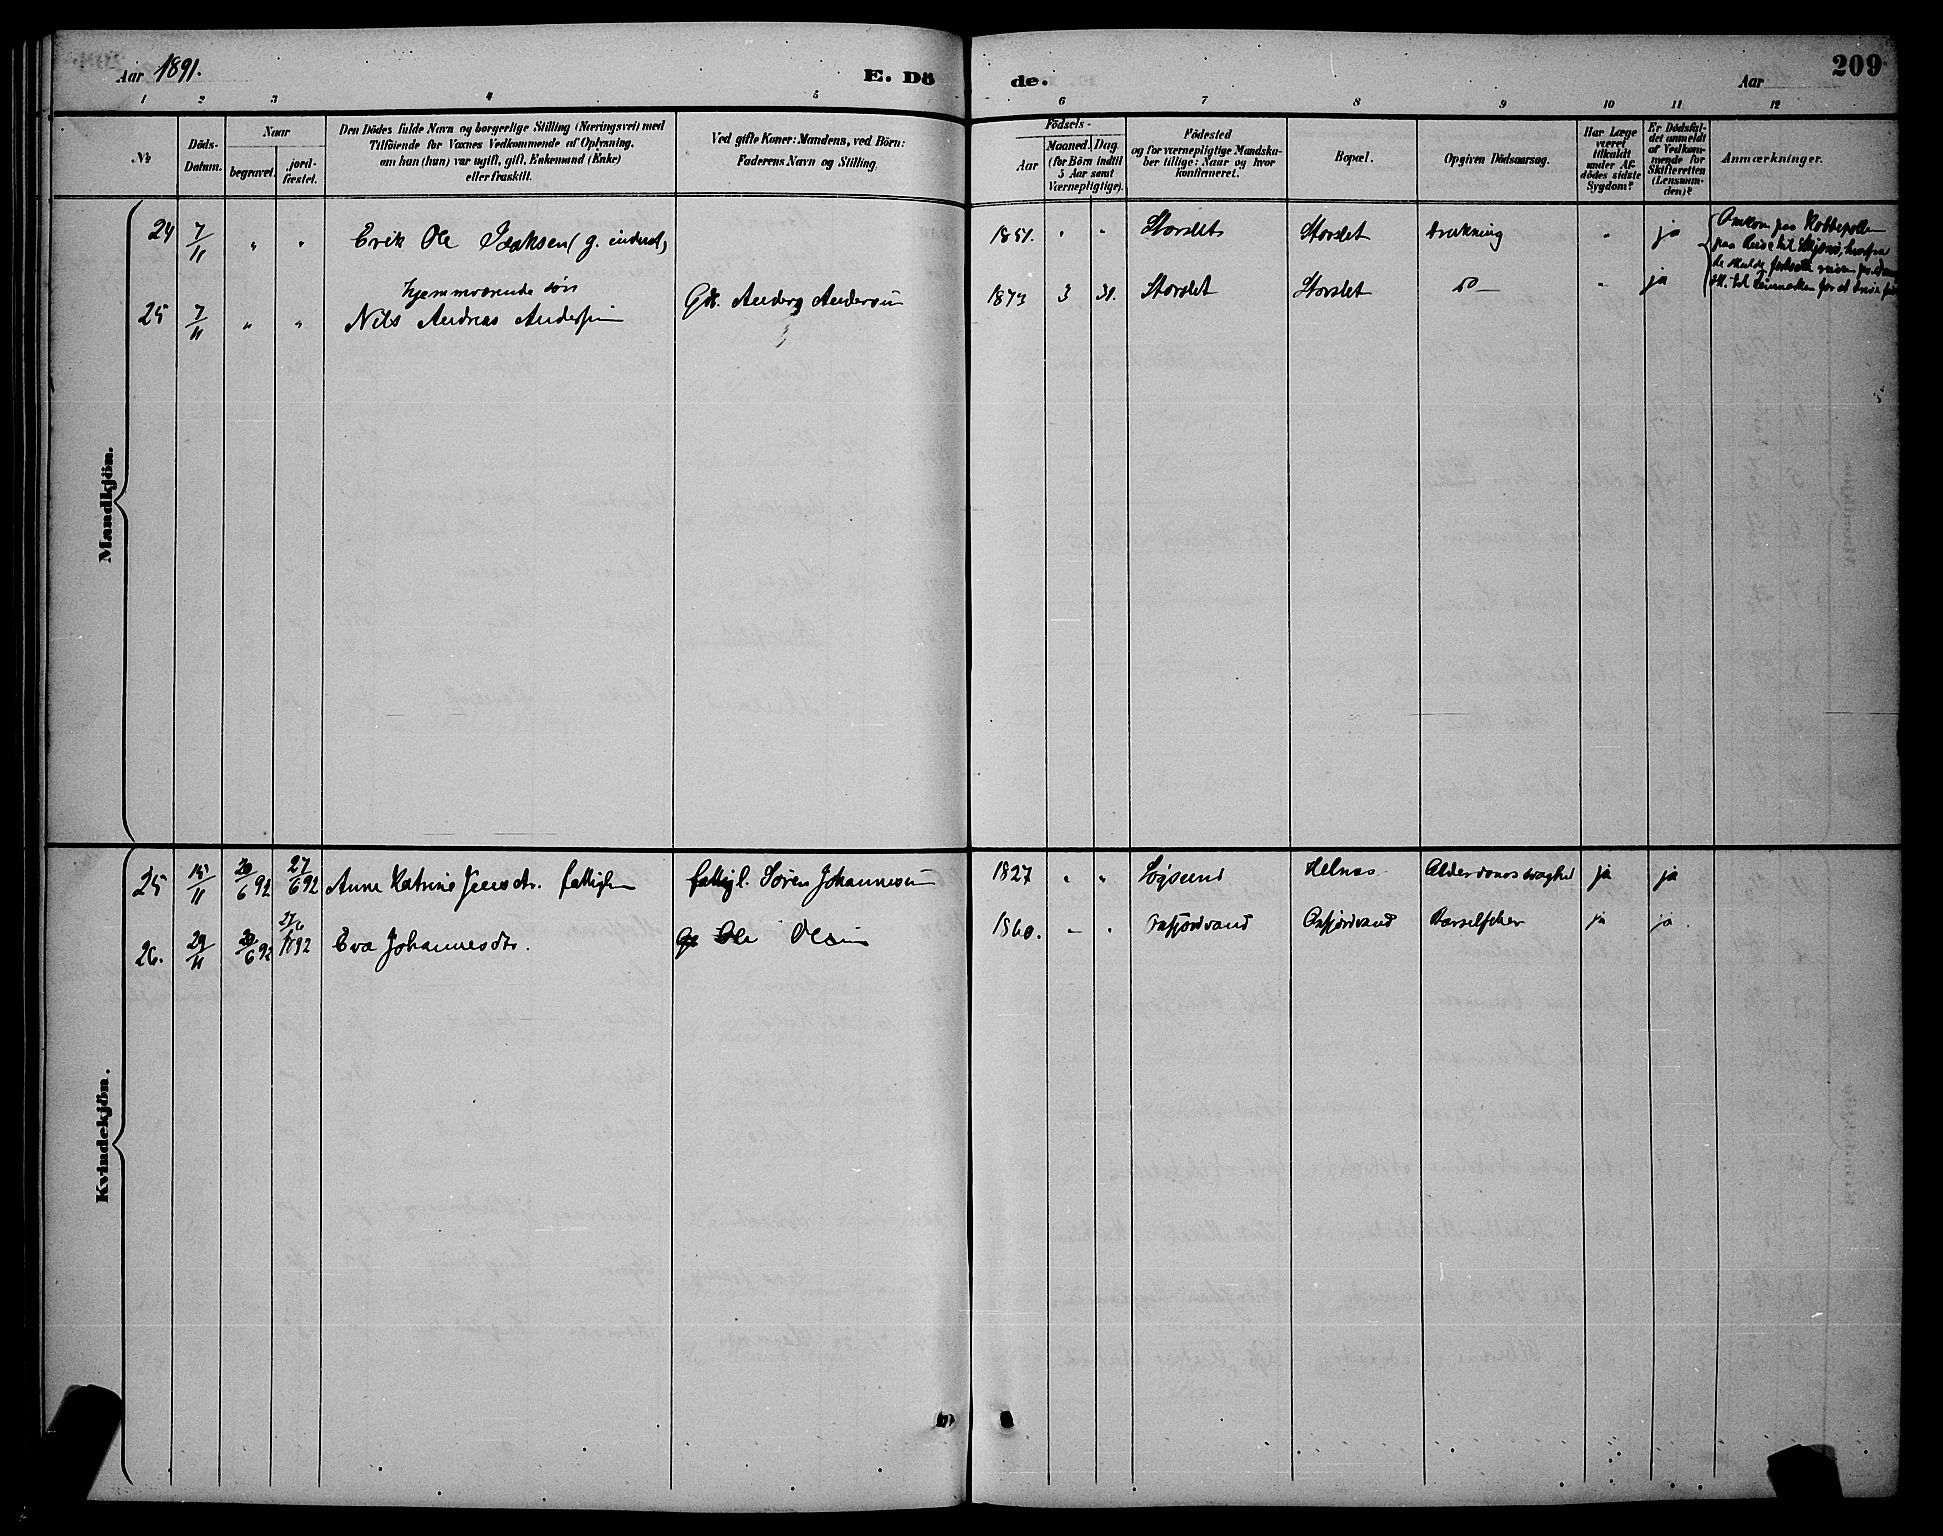 Aar 1891.
E. Dö
de.
Aar
209
1 2 3 4 5
6 7 8 9 10 11 12
No
Döds-
Datum.
Naar
begravet.
jord-
fæstet.
Den Dödes fulde Navn og borgerlige Stilling (Næringsvei) med
Tilföiende for Voxnes Vedkommende af Oplysning,
om han (hun) var ugift, gift, Enkemand (Enke)
eller fraskilt.
Ved gifte Koner: Mandens, ved Börn:
Faderens Navn og Stilling.
Födsels-
Aar
Maaned. Dag.
(for Börn indtil
5 Aar samt
Værnepligtige).
Födested
og for værnepligtige Mandska-
ber tillige: Naar og hvor
konfirmeret.
Bopæl.
Opgiven Dödsaarsag.
Har Læge
været
tilkaldt
under Af-
dödes sidste
Sygdom?
Er Dödsfal-
det anmeldt
af Vedkom-
mende for
Skifteretten
(Lensman-
den)?
Anmærkninger.
Mandkjön.
24 7/11 " " Erik Ole Isaksen (g. inderst) 1851. " " Storslet Storslet drukning " ja
Omkom paa
paa
25 7/11 " " hjemmværende søn
Nils Andreas Andersen Gdr. Anders Andersen 1873 3 31. Storslet Storslet do — " ja
Kvindekjön.
25 15/11 20/6 92 27/6 92 Anne Katrine Jensdtr. fattiglem fattigl. Sören Johannesen 1827 " " Løgsund Helnæs Alderdomssvaghed ja ja
26. 29/11 20/6 92 27/6 1892 Eva Johannesdtr. Ole Olsen 1860. " " Oxfjordvand Oxfjordvand Barselfeber ja ja.